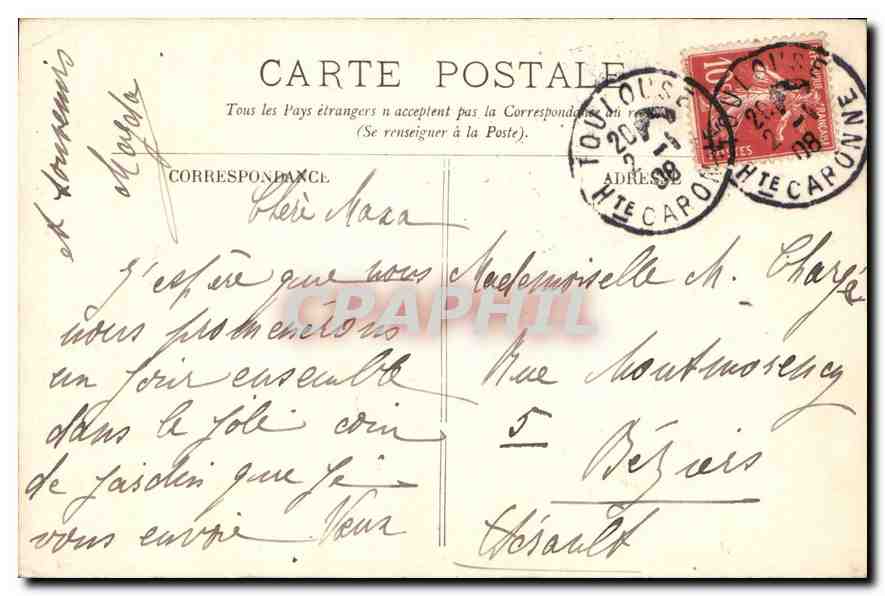 CARTE POSTALE
Tous les Pays étrangers n'acceptent pas la Correspondance au
(Se renseigner à la Poste).
CORRESPONDANCE
ADRESSE
10
TOULOUSE
20
2 -1
08
Hte GARONNE
TOULOUSE
20
2 -1
08
Hte GARONNE
Chère Maza
J'espère que nous
nous promenérons
un jour ensemble
dans le joli coin
de jardin que je
vous envoie Vœux
et
Magda
Mademoiselle M. Chargé
Rue Montmorency
5
Béziers
Hérault
CPAPHIL